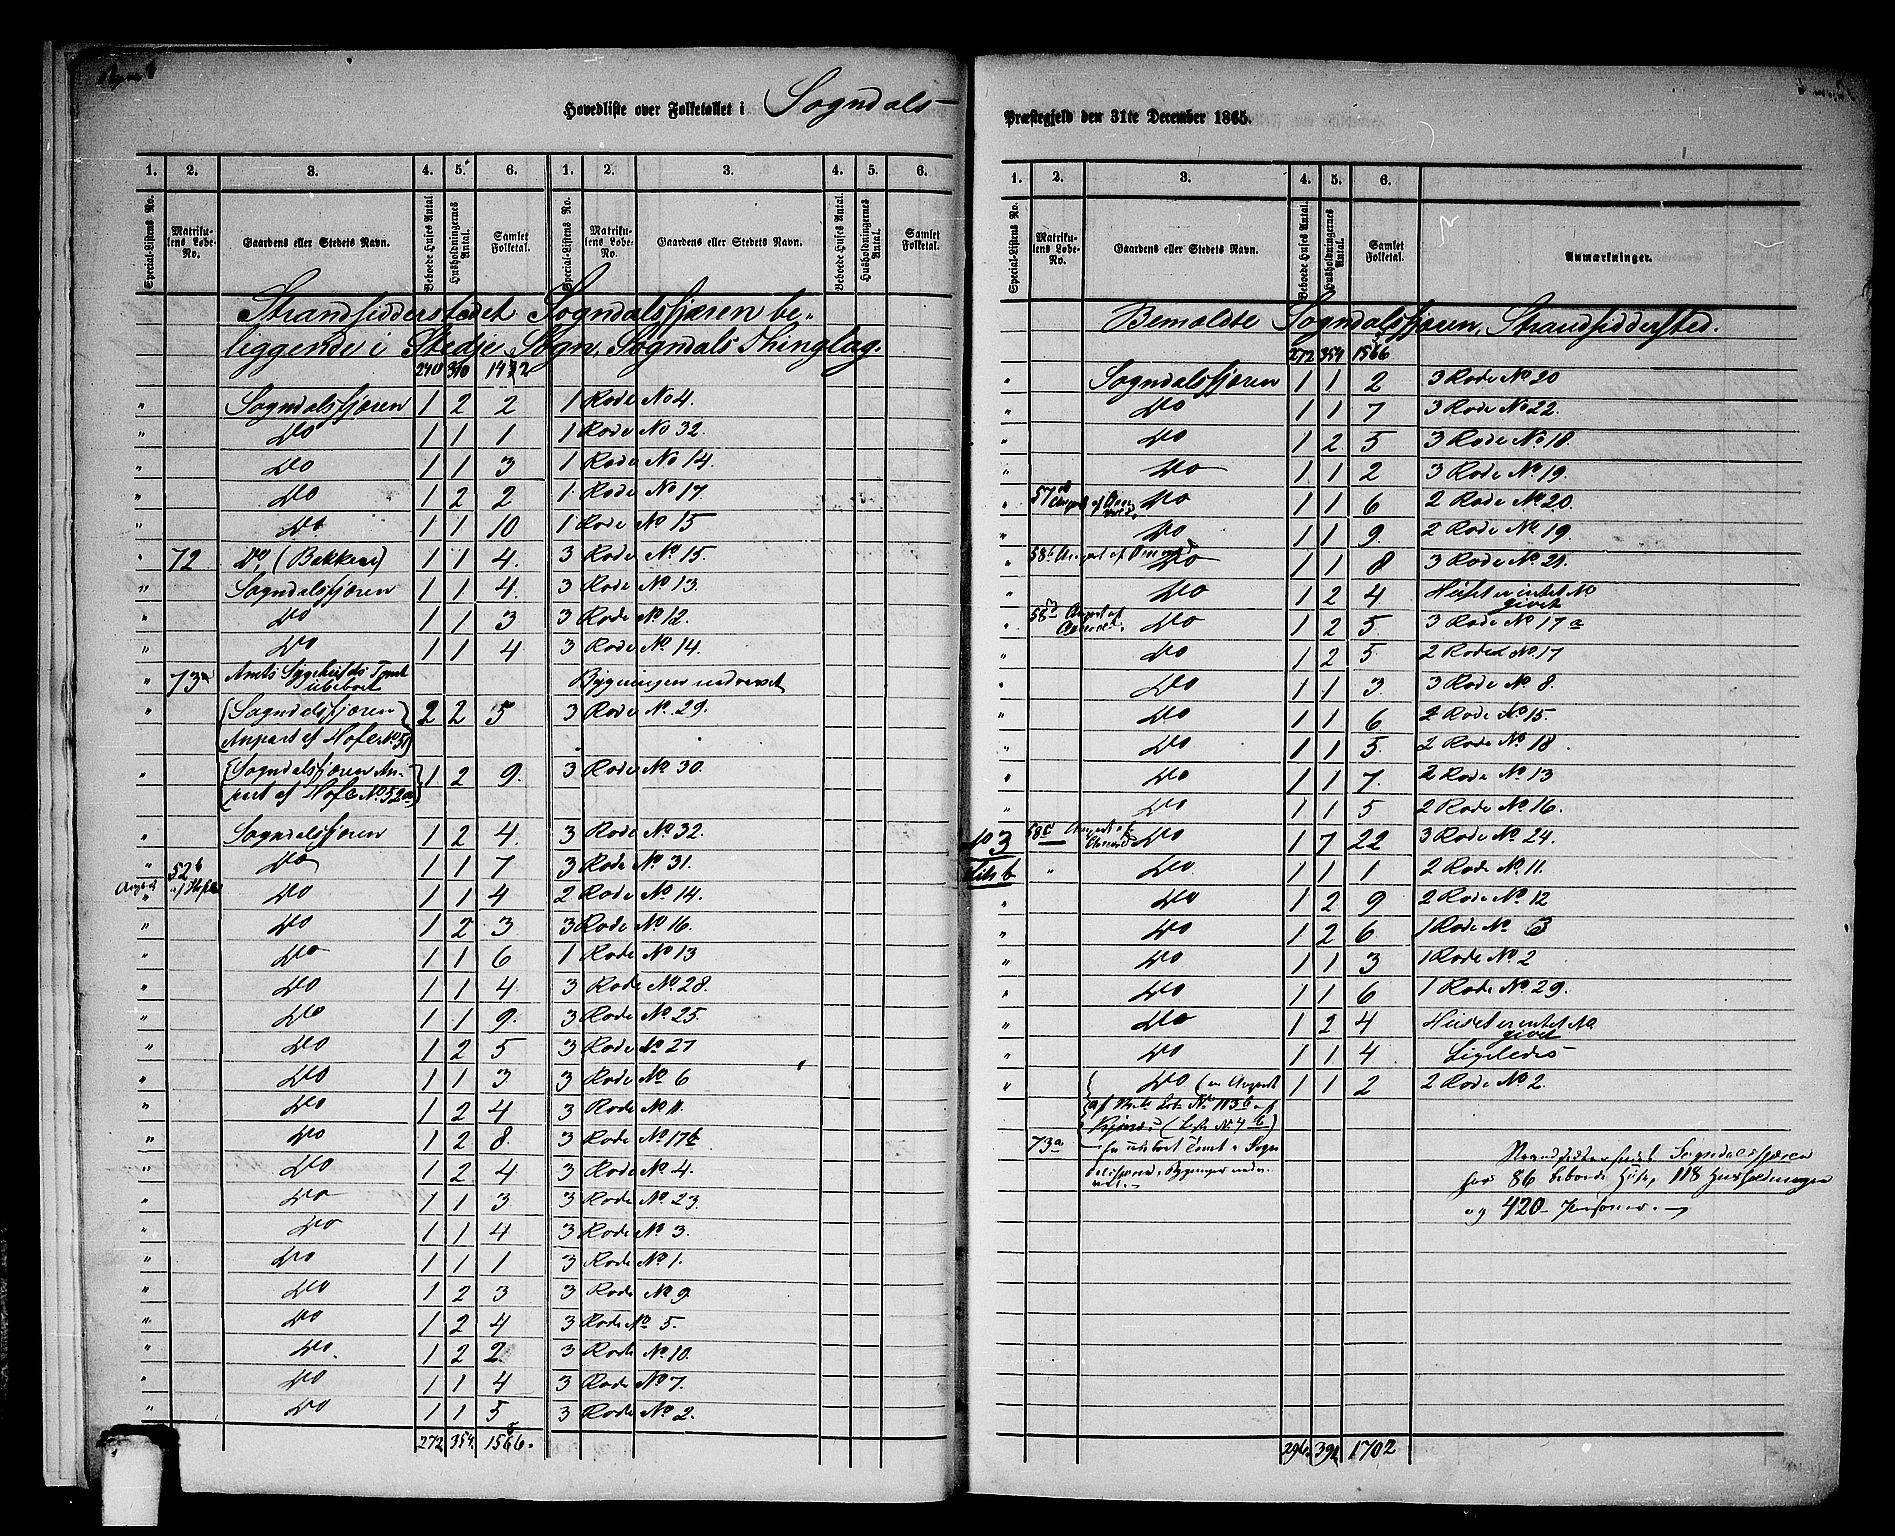 Hovedliste over Folketallet i Sogndals-
1. 2. 3. 4. 5. 6. 1. 2. 3. 4. 5. 6.
Special-Listens No. Matrikulens Løbe-No. Gaardens eller Stedets Navn. Beboede Huses Antal Husholdningernes Antal. Samlet Folketal. Special-Listens No. Matrikulens Løbe-No. Gaardens eller Stedets Navn. Beboede Huses Antal Husholdningernes Antal. Samlet Folketal.
Strandsidderstedet Sogndalsfjæren be-
liggende i Stedje Sogn, Sogndals Thinglag.
240 310
" Sogndalsfjæren 1 2 2 1 Rode No 4.
" Do 1 1 1 1 Rode No 32.
" Do 1 1 3 1 Rode No 14.
" Do 1 2 2 1 Rode No 17.
" Do 1 1 10 1 Rode No 15
" 72 Do, (Bakken) 1 1 4. 3 Rode No. 15.
" Sogndalsfjæren 1 1 4. 3 Rode No. 13.
" Do 1 1 3 3 Rode No. 12.
" Do 1 1 4 3 Rode No. 14.
" 73a Amts Sygehusets Tomt
ubeboet Bygningen nedrevet
" {Sogndalsfjæren} 2 2 5 3 Rode No. 29.
Anpart af Hofe No. 51
" {Sogndalsfjæren An- 1 2 9. 3 Rode No. 30.
part af Hofe No. 52a}
" Sogndalsfjæren 1 2 4. 3 Rode No. 32.
" Do 1 1 7 3 Rode No. 31.
Anpart 52b af Hofe Do 1 1 4 2 Rode No. 14.
" Do 1 2 3 3 Rode No. 16.
" Do 1 1 6 1 Rode No. 13
" Do 1 1 4. 3 Rode No. 28.
" Do 1 1 9. 3 Rode No. 25.
" Do 1 2 5 3 Rode No 27
" Do 1 1 3 3 Rode No 6
" Do 1 2 4 3 Rode No 11.
" Do 1 2 8. 3 Rode No 17b
" Do 1 2 4 3 Rode No. 4.
" Do 1 1 3 3 Rode No. 23.
" Do 1 1 4 3 Rode No. 3.
" Do 1 1 1 3 Rode No. 1.
" Do 1 2 3 3 Rode No 9.
" Do 1 2 4 3 Rode No 5.
" Do. 1 2 2 3 Rode No. 10.
" Do 1 1 4 3 Rode No 7.
" Do 1 1 5 3 Rode No. 2.
272 354. 1566.
Præstegjeld den 31te December 1865.
1. 2. 3. 4. 5. 6.
Special-Listens No. Matrikulens Løbe-No. Gaardens eller Stedets Navn. Beboede Huses Antal. Husholdningernes Antal. Samlet Folketal. Anmærkninger.
Bemeldte Sogndalsfjæren, Strandsiddersted.
272 354 1566
" Sogndalsfjæren 1 1 2 3 Rode No 20
" Do 1 1 7 3 Rode No 22.
" Do 1 2 5 3 Rode No 10.
" Do 1 1 2 3 Rode No. 19.
" 57 Anpart af Do 1 1 6 2 Rode No. 20.
" Do 1 1 9. 2 Rode No. 19.
" 58b Anpart af Do 1 1 8 3 Rode No. 21.
" Do 1 2 4 Huset er intet No
givet
" 58 Anpart af Do 1 2 5. 3 Rode No. 17a
" Do 1 2 5 2 Rode No. 17
" Do 1 1 3. 3 Rode No. 8.
" Do 1 1 6 2 Rode No. 15.
" Do 1 1 5. 2 Rode No 18.
" Do 1 1 7. 2 Rode No. 13
" Do 1 1 5 2 Rode No. 16.
103 58c Anpart af Do 1 7 22 3 Rode No. 24.
b " Do. 1 1 1 2 Rode No. 11.
" Do 1 2 9 2 Rode No. 12
" Do 1 2 6. 1 Rode No
" Do 1 1 3 1 Rode No. 2
" Do 1 1 6 1 Rode No. 29.
" Do 1 2 4 Huset er intet No
givet
" Do 1 1 4 Ligeledes
" {Do (en Anpart 1 1 2 2 Rode No 2.
af Matr. Løbe No 113b af
(Liste No 4b)}
73a En ubeboet Tomt i Sogn-
dalsfjæren, Bygningen nedre-
vet.
Strandsidderstedet Sogndalsfjæren
har 86 beboede Huse, 118 Husholdninger
og 420 Personer.
296 392 1702